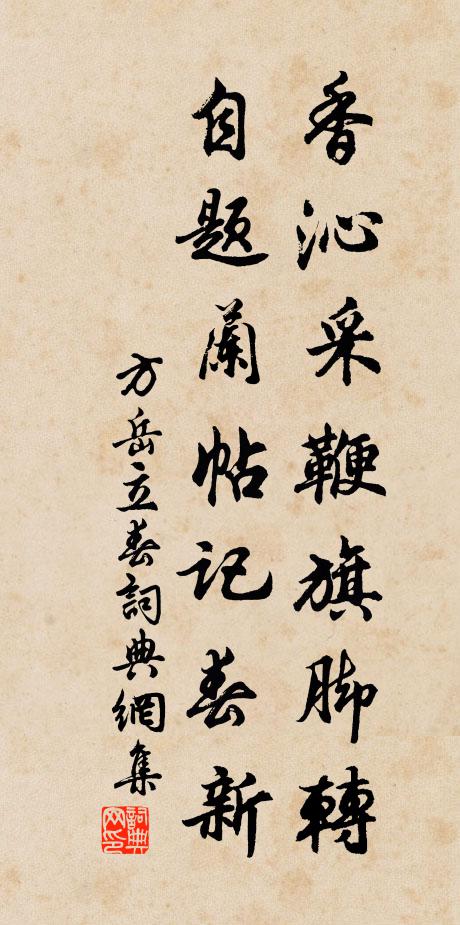 香沁采鞭旗脚轉
自题蘭帖記春新
方岳立春詞典網集
詞典网印